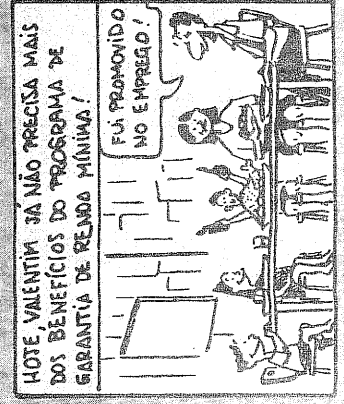 HOJE, VALENTIM JÁ NÃO PRECISA MAIS
DOS BENEFÍCIOS DO PROGRAMA DE
GARANTIA DE RENDA MÍNIMA!
FUI PROMOVIDO
NO EMPREGO!